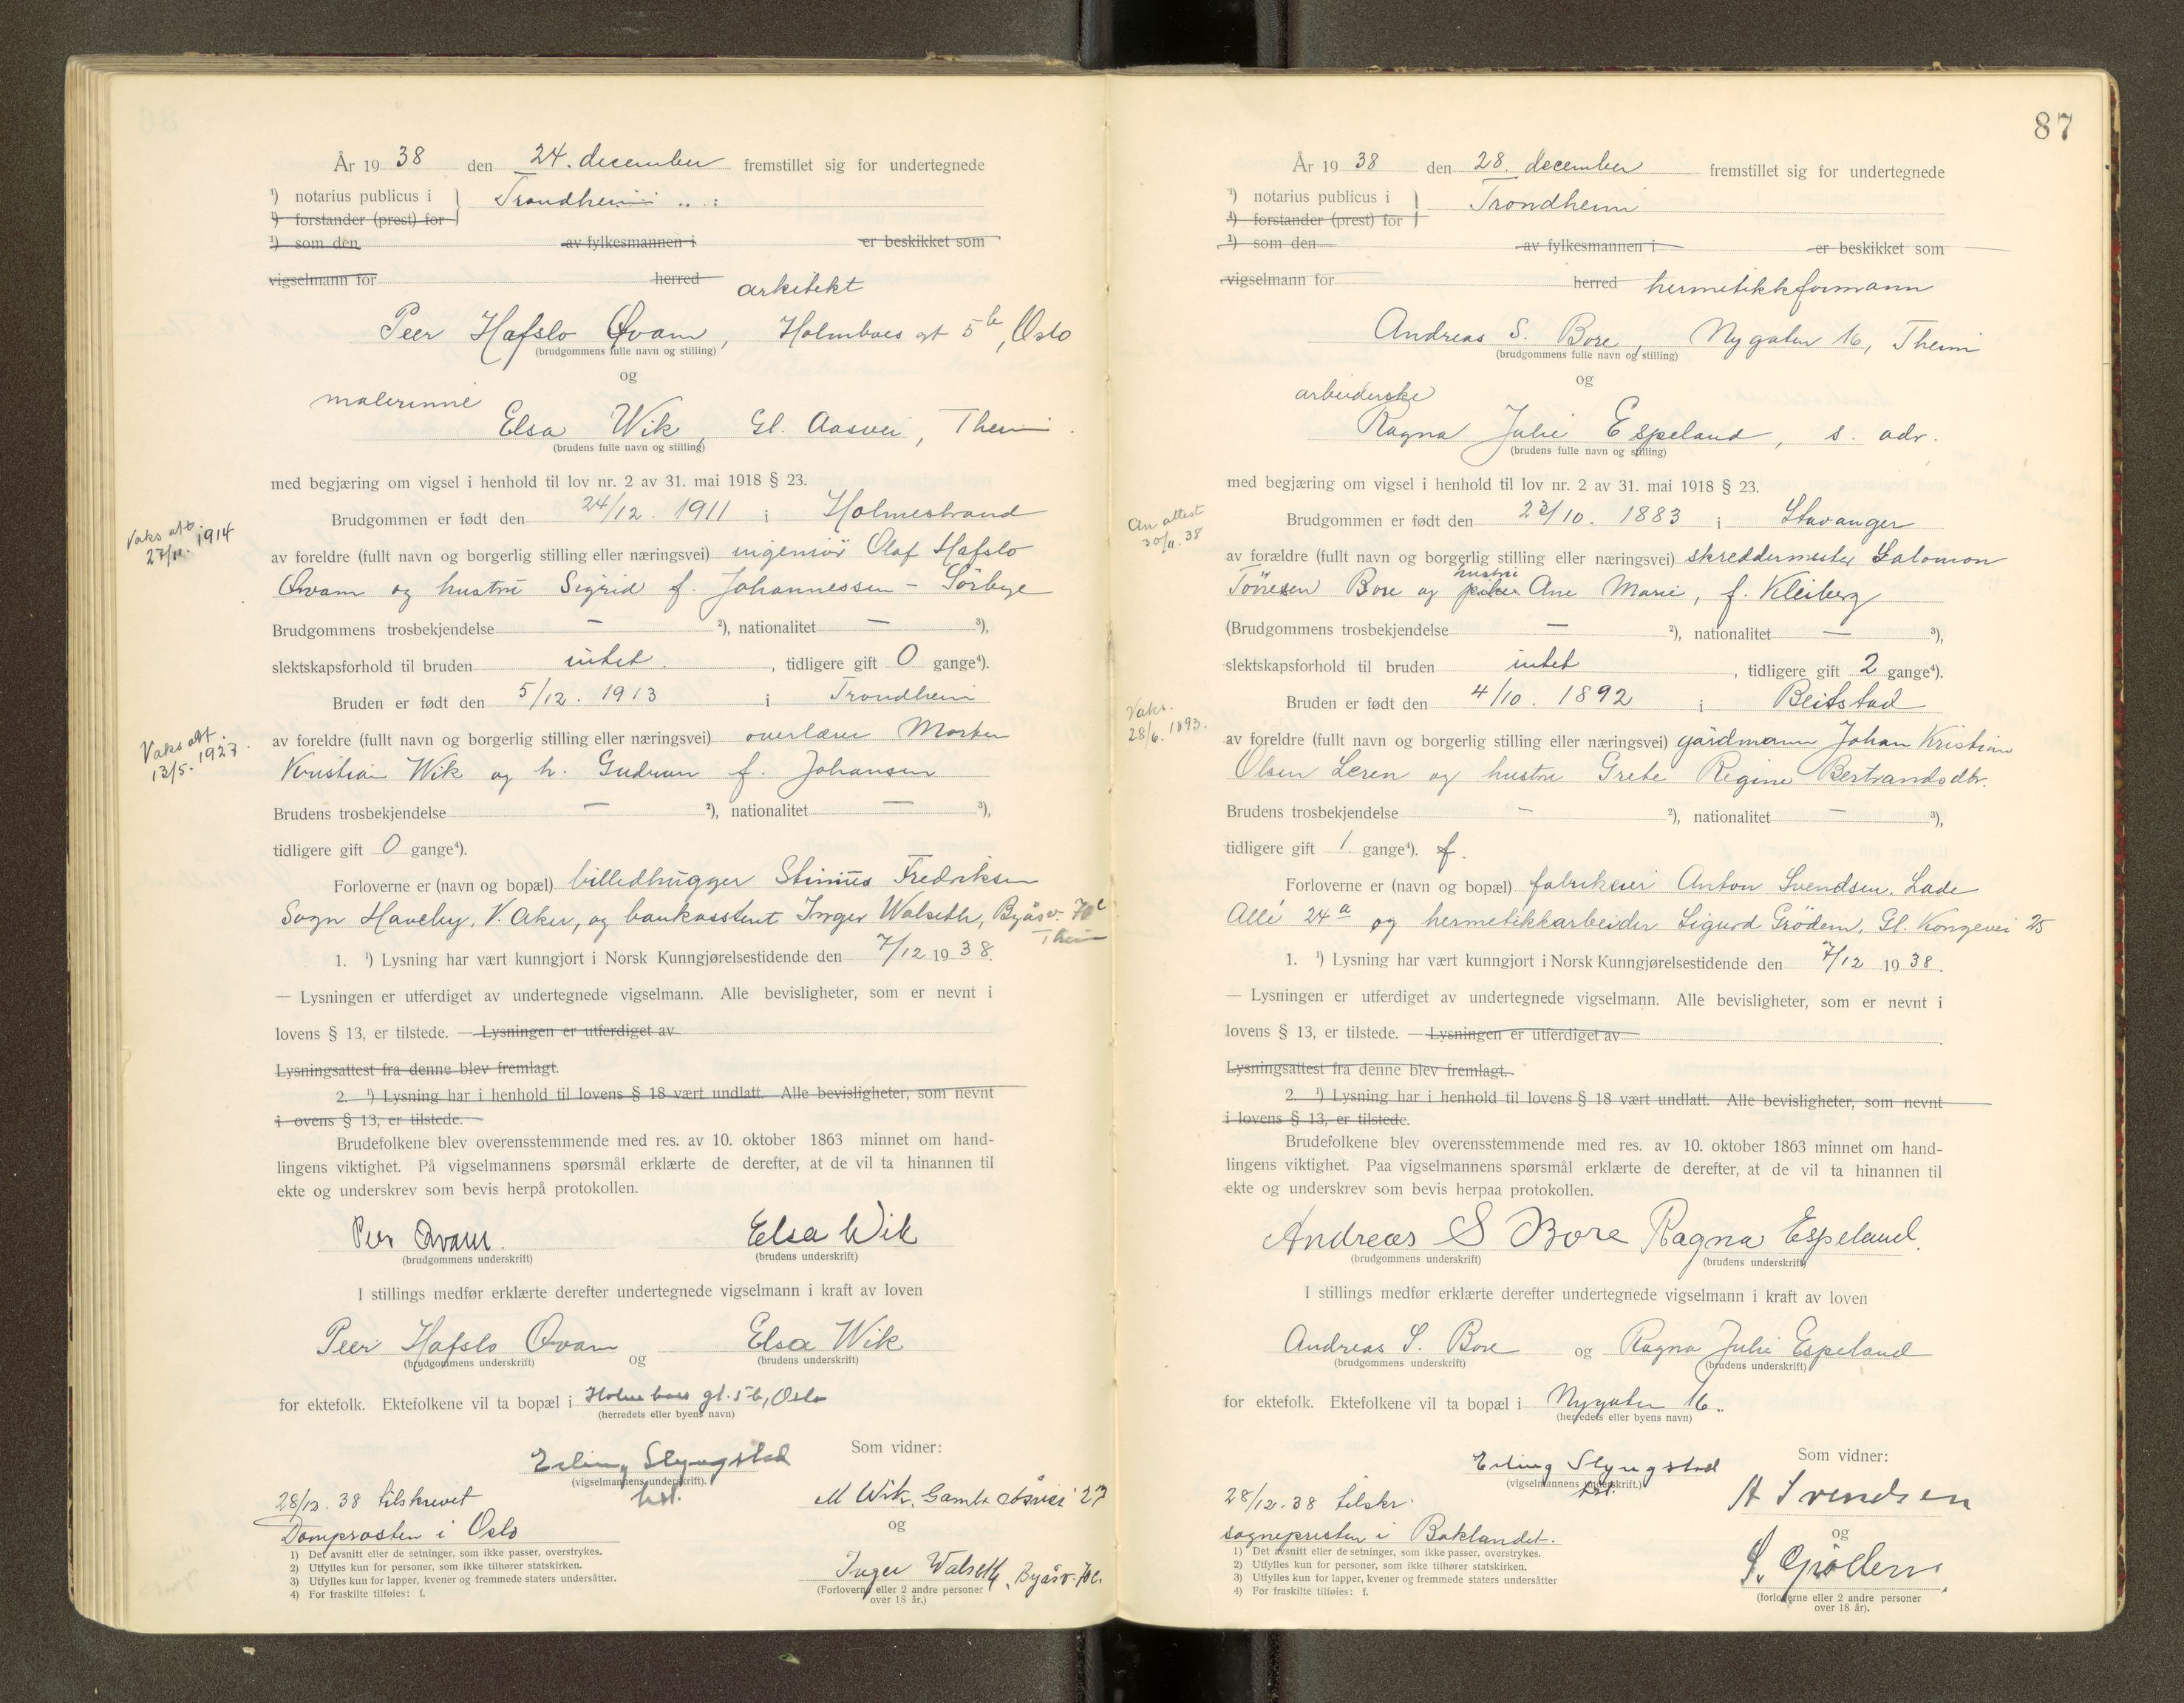 År 19 38 den 24. december fremstillet sig for undertegnede
¹) notarius publicus i } Trondheim
¹) forstander (prest) for
¹) som den av fylkesmannen i er beskikket som
vigselmann for herred arkitekt
Peer Hafslo Qvam, Holmboes gt 5b, Oslo
(brudgommens fulle navn og stilling)
og
malerinne
Elsa Wik, Gl. Aasvei, Theim.
(brudens fulle navn og stilling)
med begjæring om vigsel i henhold til lov nr. 2 av 31. mai 1918 § 23.
Brudgommen er født den 24/12. 1911 i Holmestrand
Vaks att.
27/11. 1914
av foreldre (fullt navn og borgerlig stilling eller næringsvei) ingeniör Olaf Hafslo
Qvam og hustru Sigrid f. Johannessen - Sörbye
Brudgommens trosbekjendelse — ²), nationalitet — ³),
slektskapsforhold til bruden intet. , tidligere gift 0 gange⁴).
Bruden er født den 5/12. 1913 i Trondheim
Vaks att.
13/5. 1927.
av foreldre (fullt navn og borgerlig stilling eller næringsvei) overlærer Morten
Kristian Wik og h. Gudrun f. Johansen
Brudens trosbekjendelse — ²), nationalitet — ³),
tidligere gift 0 gange⁴).
Forloverne er (navn og bopæl) billedhugger Stinius Fredriksen
Sogn Haveby, V. Aker, og bankasstent Inger Walseth, Byåsv. 70c
Theim
1. ¹) Lysning har vært kunngjort i Norsk Kunngjørelsestidende den 7/12 19 38.
— Lysningen er utferdiget av undertegnede vigselmann. Alle bevisligheter, som er nevnt i
lovens § 13, er tilstede. — Lysningen er utferdiget av
Lysningsattest fra denne blev fremlagt.
2. ¹) Lysning har i henhold til lovens § 18 vært undlatt. Alle bevisligheter, som nevnt
i ovens § 13, er tilstede.
Brudefolkene blev overensstemmende med res. av 10. oktober 1863 minnet om hand-
lingens viktighet. På vigselmannens spørsmål erklærte de derefter, at de vil ta hinannen til
ekte og underskrev som bevis herpå protokollen.
Peer Qvam. Elsa Wik
(brudgommens underskrift) (brudens underskrift)
I stillings medfør erklærte derefter undertegnede vigselmann i kraft av loven
Peer Hafslo Qvam og Elsa Wik
(brudgommens underskrift) (brudens underskrift)
for ektefolk. Ektefolkene vil ta bopæl i Holmboes gt. 5b, Oslo
(herredets eller byens navn)
Som vidner:
Erling Slyngstad
(vigselmannens underskrift).
M Wik, Gamle Åsvei 27
og
28/12. 38 tilskrevet
Domprosten i Oslo
Inger Walseth, Byåsv. 70c.
(Forloverne eller 2 andre personer
over 18 år.)
1) Det avsnitt eller de setninger, som ikke passer, overstrykes.
2) Utfylles kun for personer, som ikke tilhører statskirken.
3) Utfylles kun for lapper, kvener og fremmede staters undersåtter.
4) For fraskilte tilføies: f.
87
År 19 38 den 28. december fremstillet sig for undertegnede
¹) notarius publicus i } Trondheim
¹) forstander (prest) for
¹) som den av fylkesmannen i er beskikket som
vigselmann for herred hermetikkformann
Andreas S. Bore, Nygaten 16, Theim
(brudgommens fulle navn og stilling)
og
arbeiderske
Ragna Julie Espeland, s. adr.
(brudens fulle navn og stilling)
med begjæring om vigsel i henhold til lov nr. 2 av 31. mai 1918 § 23.
An attest
30/11. 38
Brudgommen er født den 23/10. 1883 i Stavanger
av forældre (fullt navn og borgerlig stilling eller næringsvei) skreddermester Salomon
hustru
Tönnesen Bore og Ane Marie, f. Kleiberg
(Brudgommens trosbekjendelse — ²), nationalitet — ³),
slektskapsforhold til bruden intet , tidligere gift 2 gange⁴).
Bruden er født den 4/10. 1892 i Beitstad
Vaks.
28/6. 1893.
av foreldre (fullt navn og borgerlig stilling eller næringsvei) gårdmann Johan Kristian
Olsen Leren og hustru Grete Regine Bertrandsdtr.
Brudens trosbekjendelse — ²), nationalitet — ³),
tidligere gift 1 gange⁴). f.
Forloverne er (navn og bopæl) fabrikeier Anton Svendsen, Lade
Allé 24a og hermetikkarbeider Sigurd Grödem, Gl. Kongevei 25
1. ¹) Lysning har vært kunngjort i Norsk Kunngjørelsestidende den 7/12 19 38.
— Lysningen er utferdiget av undertegnede vigselmann. Alle bevisligheter, som er nevnt i
lovens § 13, er tilstede. — Lysningen er utferdiget av
Lysningsattest fra denne blev fremlagt.
2. ¹) Lysning har i henhold til lovens § 18 vært undlatt. Alle bevisligheter, som nevnt
i lovens § 13, er tilstede.
Brudefolkene blev overensstemmende med res. av 10. oktober 1863 minnet om hand-
lingens viktighet. Paa vigselmannens spørsmål erklærte de derefter, at de vil ta hinannen til
ekte og underskrev som bevis herpaa protokollen.
Andreas S Bore Ragna Espeland.
(brudgommens underskrift) (brudens underskrift)
I stillings medfør erklærte derefter undertegnede vigselmann i kraft av loven
Andreas S. Bore og Ragna Julie Espeland
(brudgommens underskrift) (brudens underskrift)
for ektefolk. Ektefolkene vil ta bopæl i Nygaten 16.
(herredets eller byens navn)
Som vidner:
Erling Slyngstad
(vigselmannens underskrift.)
A Svendsen
og
28/12. 38 tilskr.
sognepresten i Baklandet.
S. Grödem.
(forloverne eller 2 andre personer
over 18 år).
1) Det avsnitt eller de setninger, som ikke passer, overstrykes.
2) Utfylles kun for personer, som ikke tilhører statskirken.
3) Utfylles kun for lapper, kvener og fremmede staters undersåtter
4) For fraskilte tilføies: f.